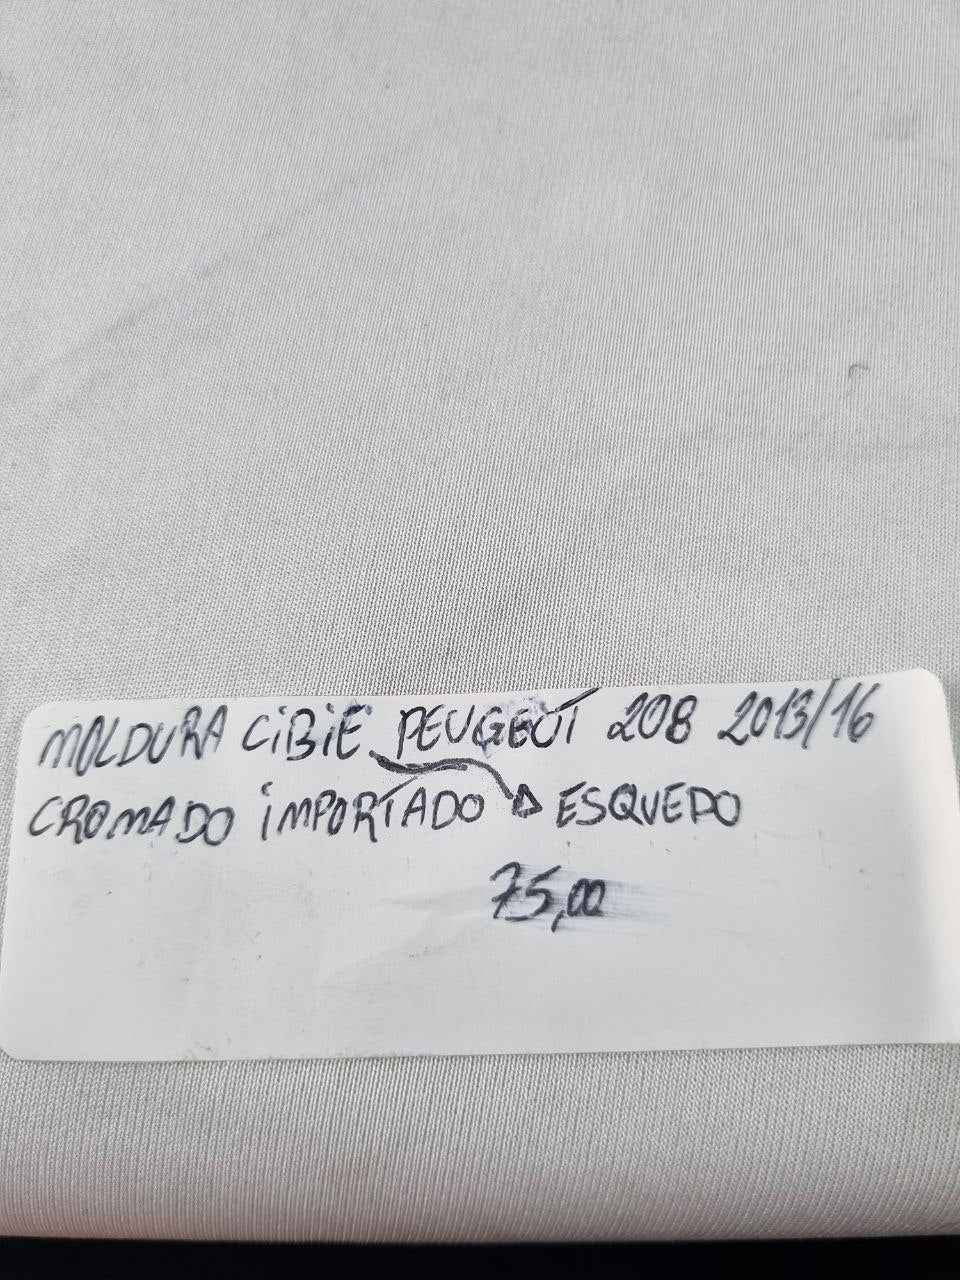 MOLDURA CiBiE PEUGEOT 208 2013/16
CROMADO iMPORTADO ESQUEDO
75,00